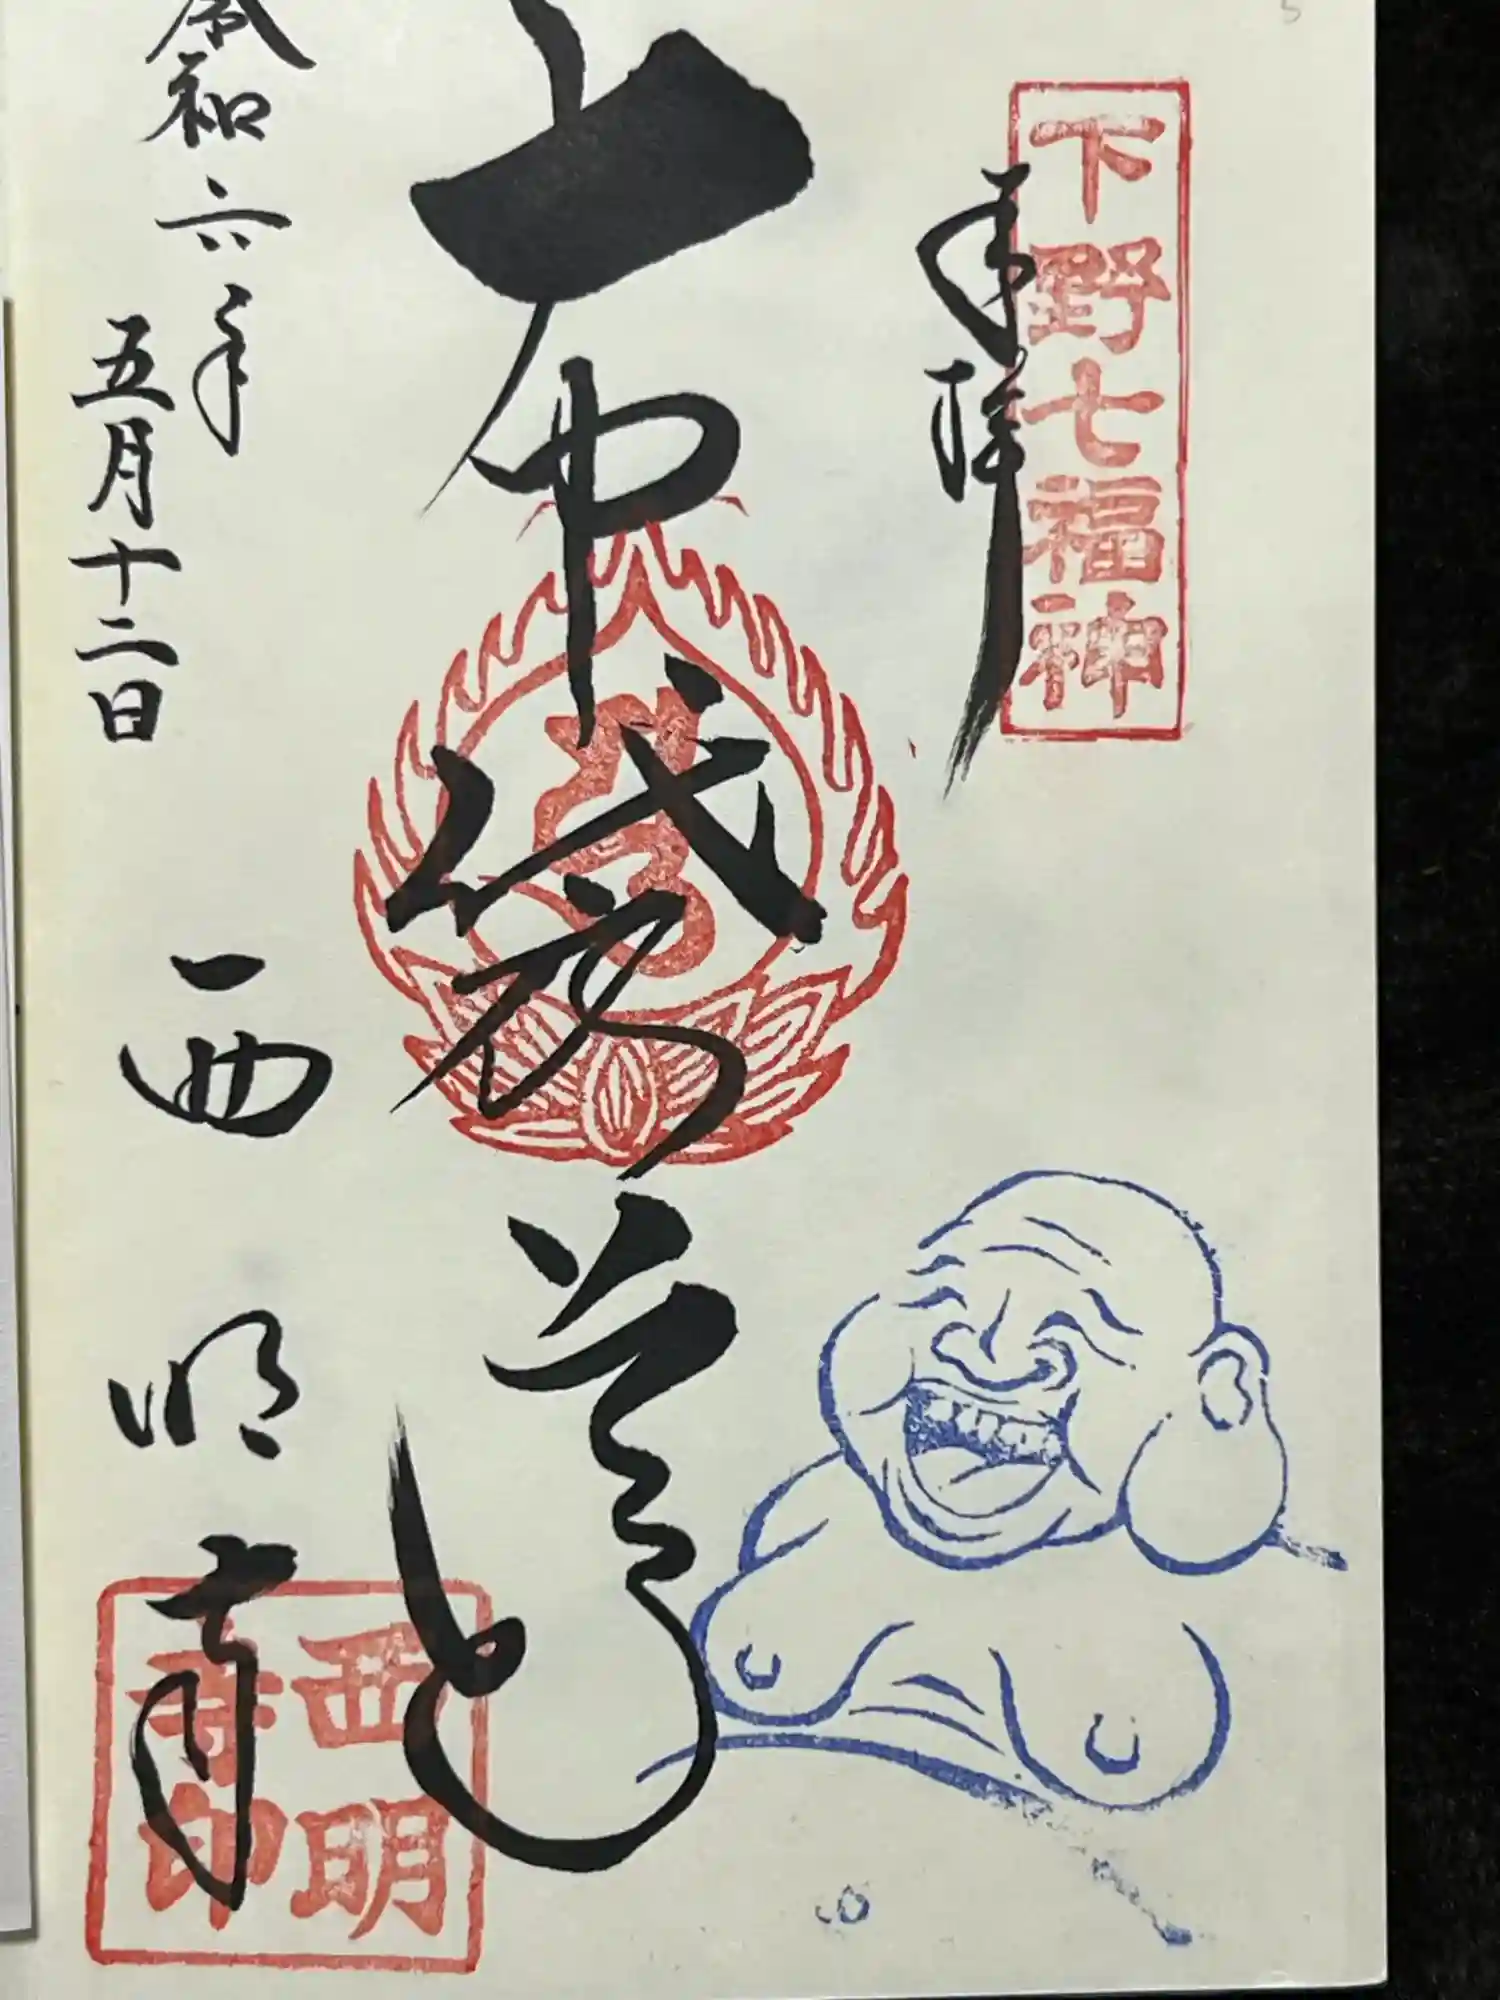 下野七福神
奉拝
布袋尊
令和六年
五月十二日
西明寺
西明
寺印